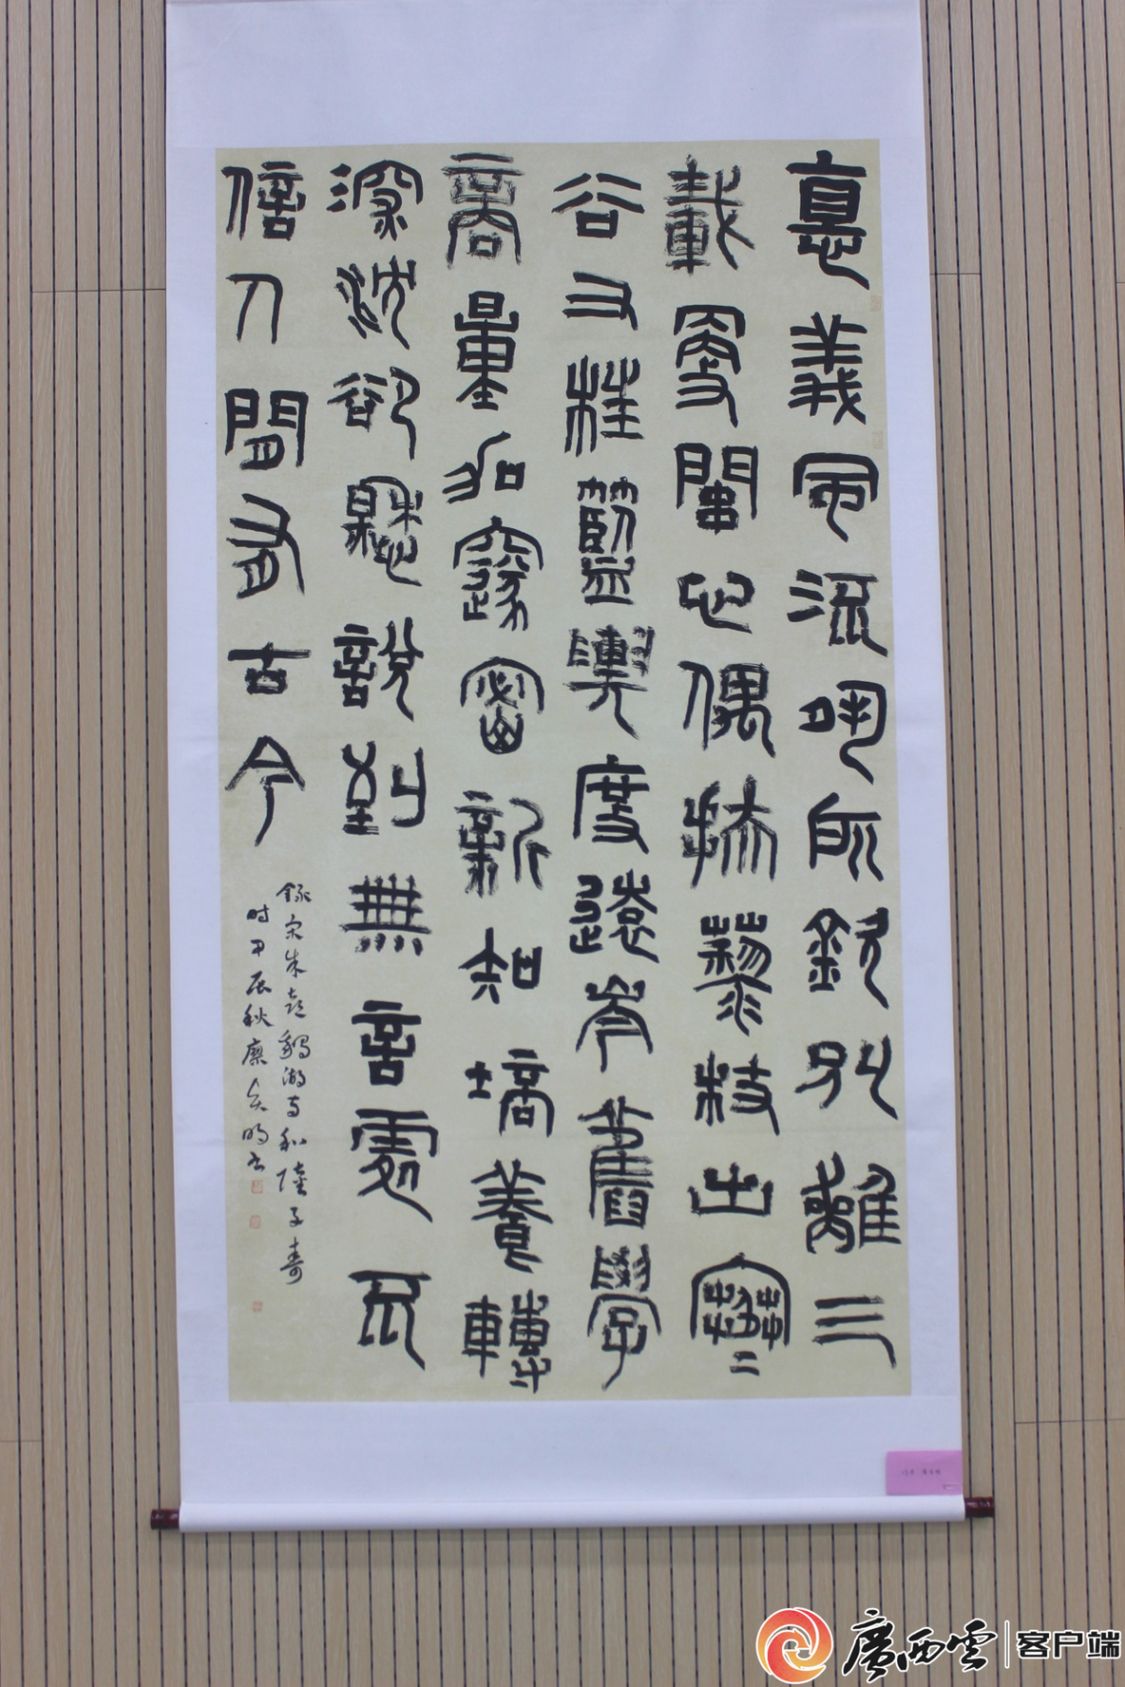 悳義風流夙所欽別離三
載更關心偶扶藜杖出寒二
谷又枉籃輿度遠岑舊學
商量加邃密新知培養轉
深沈卻愁說到無言處不
信人間有古今
錄宋朱熹鵝湖寺和陸子壽
時甲辰秋廉
廣西雲 客户端